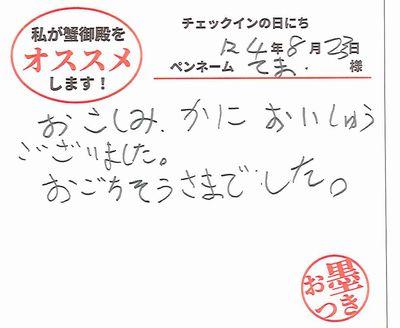 私が蟹御殿を
オススメ
します！
チェックインの日にち
R4年8月23日
ペンネーム てま. 様
おこしみ、かに おいしゅう
ございました。
おごちそうさまでした。
お墨つき